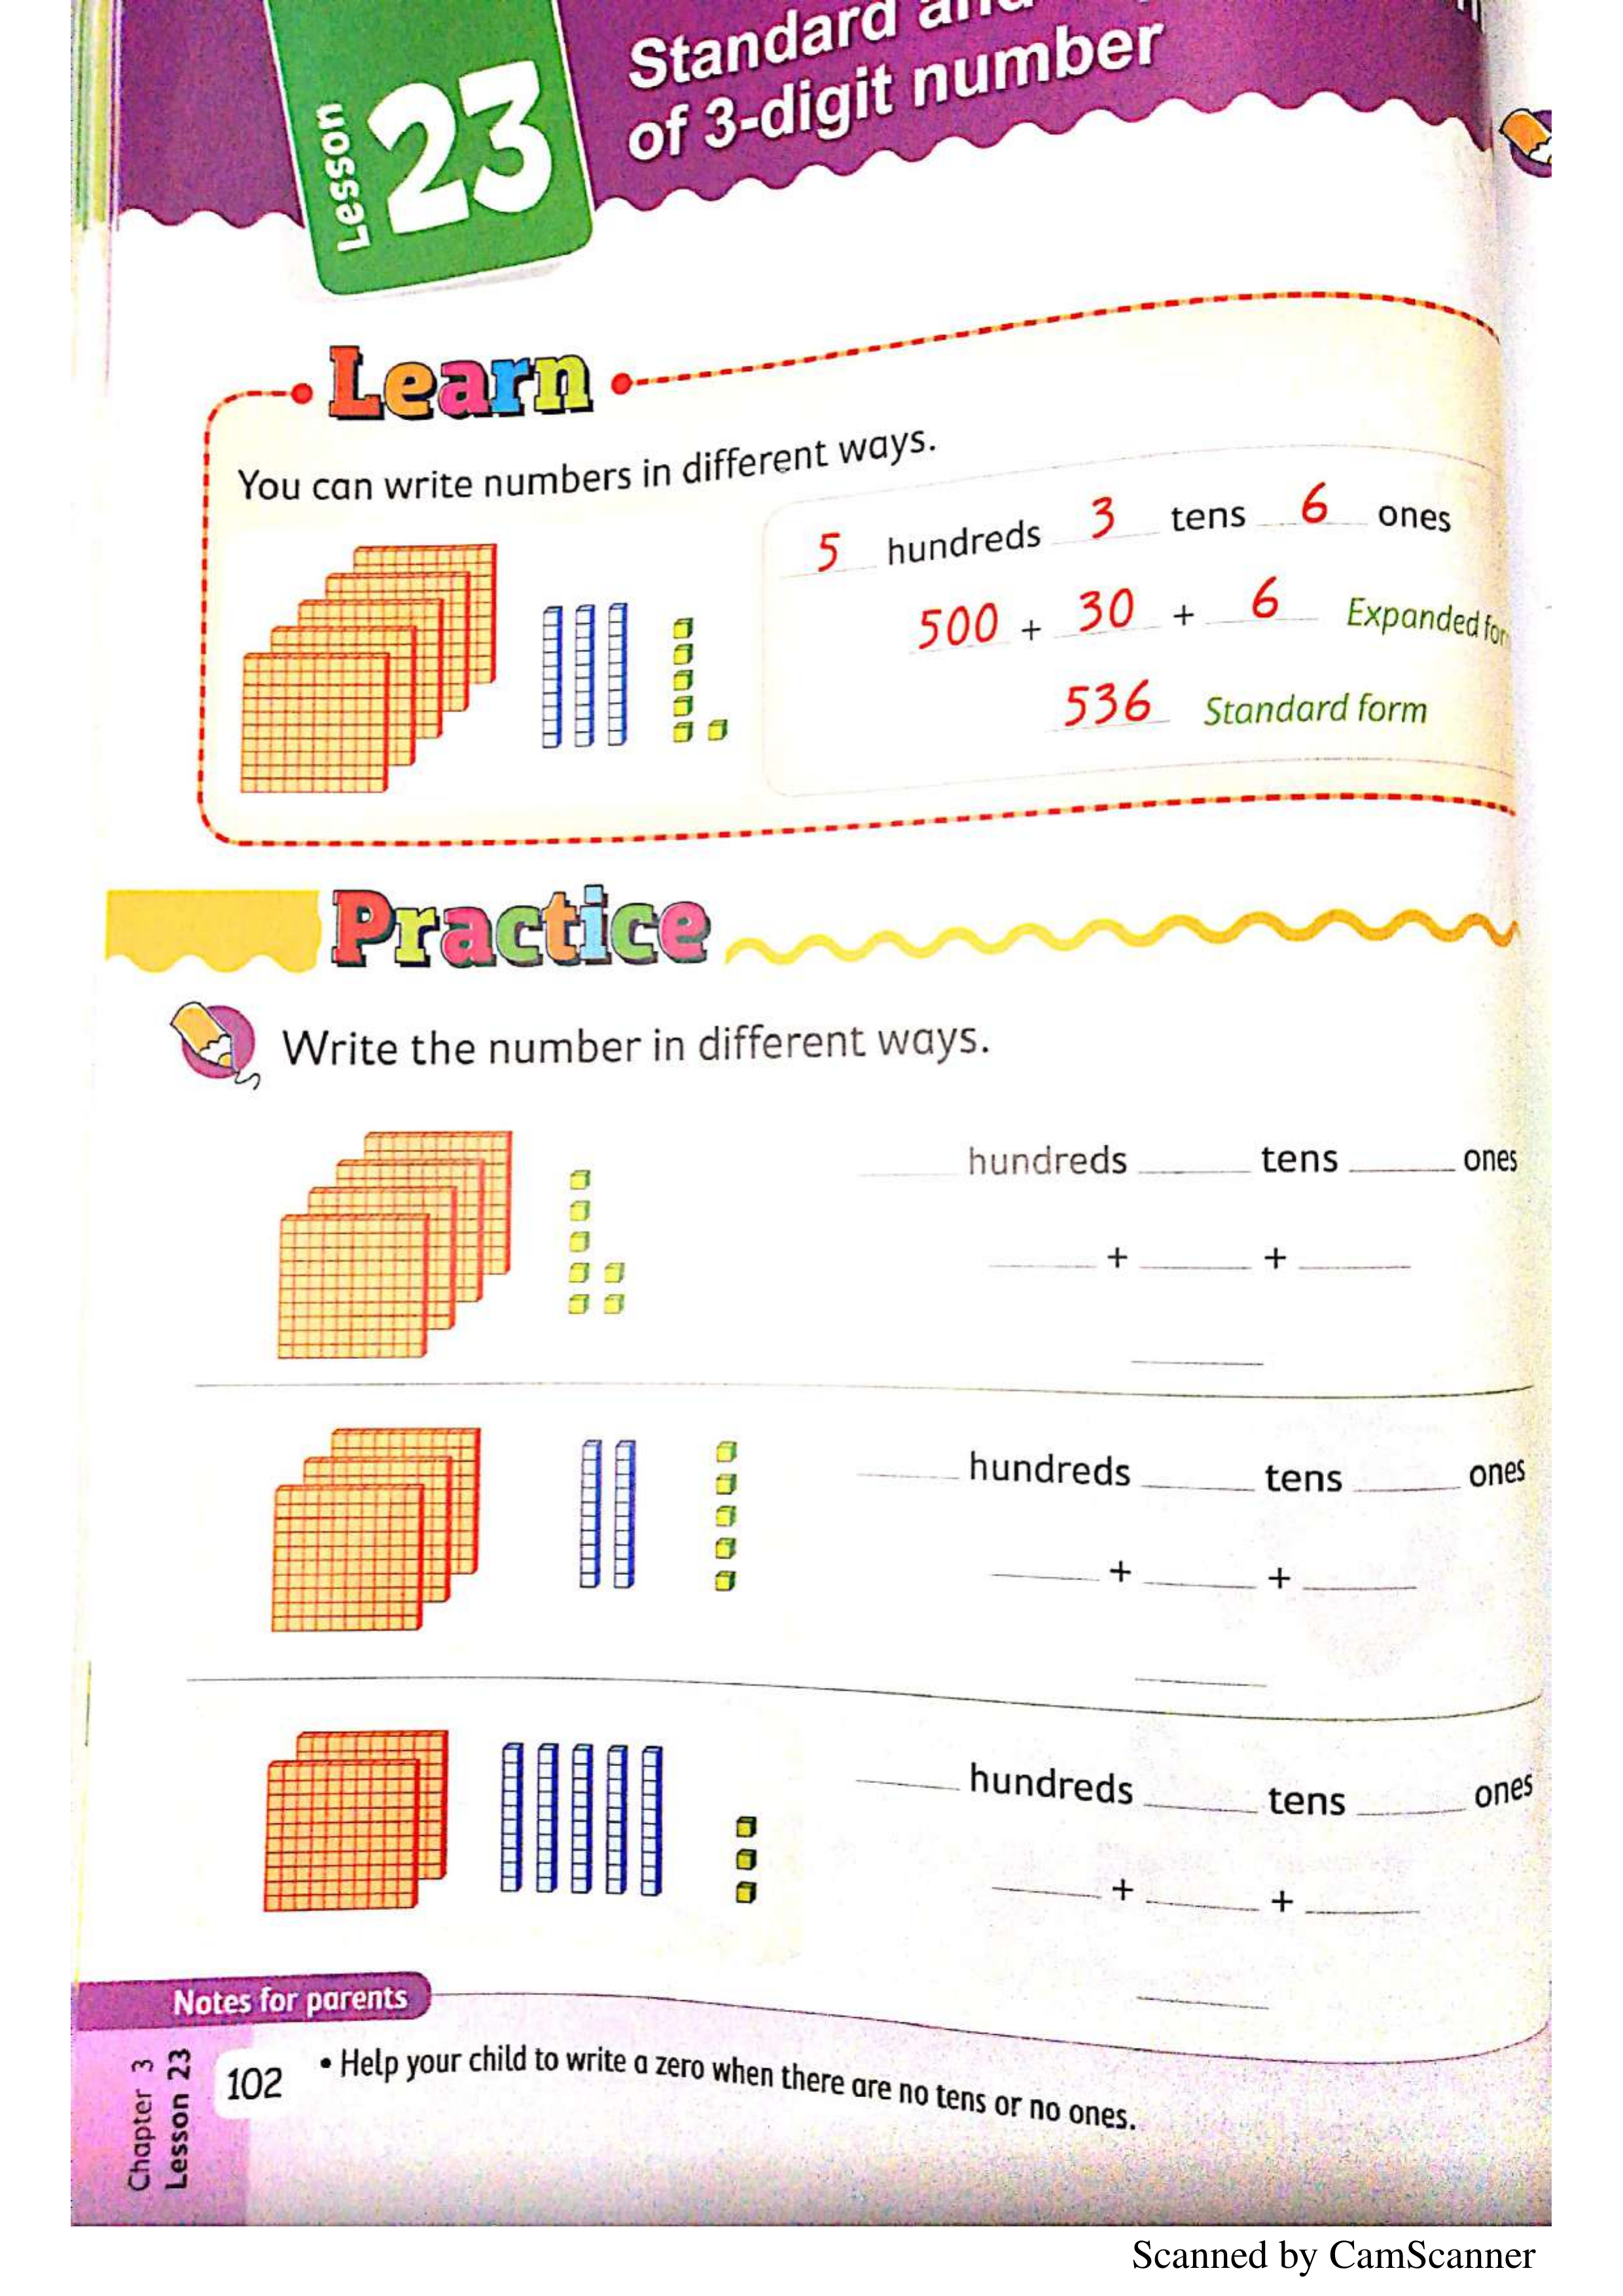 Lesson 23
Standard
of 3-digit number
Learn
You can write numbers in different ways.
5 hundreds 3 tens 6 ones
500 + 30 + 6 Expanded for
536 Standard form
Practice
Write the number in different ways.
hundreds tens ones
+ +
hundreds tens ones
+ +
hundreds tens ones
+ +
Notes for parents
• Help your child to write a zero when there are no tens or no ones.
102
Chapter 3
Lesson 23
Scanned by CamScanner